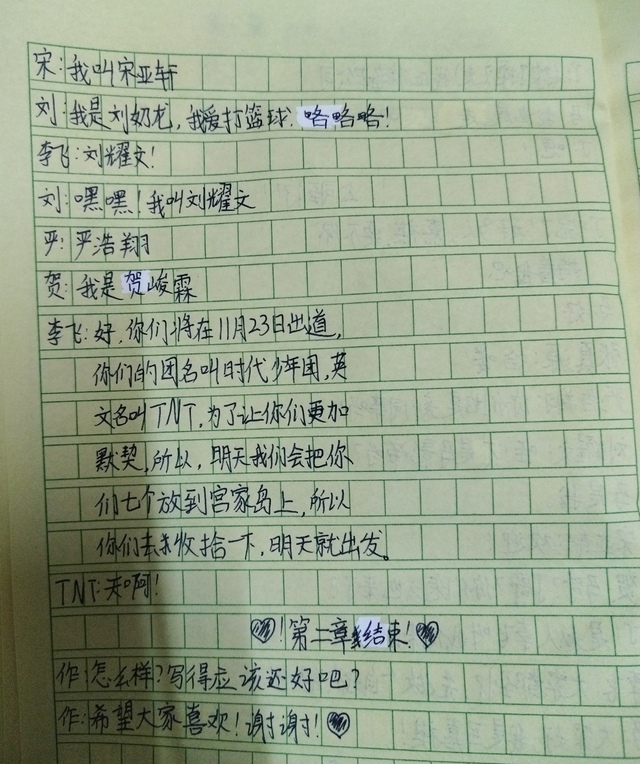 宋:我叫宋亚轩
刘:我是刘奶龙,我爱打篮球.咯咯咯!
李飞:刘耀文!
刘:嘿嘿!我叫刘耀文
严:严浩翔
贺:我是贺峻霖
李飞:好,你们将在11月23日出道,
你们的团名叫时代少年团,英
文名叫TNT,为了让你们更加
默契,所以,明天我们会把你
们七个放到宫家岛上,所以
你们去收拾一下,明天就出发。
TNT:来啊!
♡!第二章结束!♡
作:怎么样?写得应该还好吧?
作:希望大家喜欢!谢谢!♡